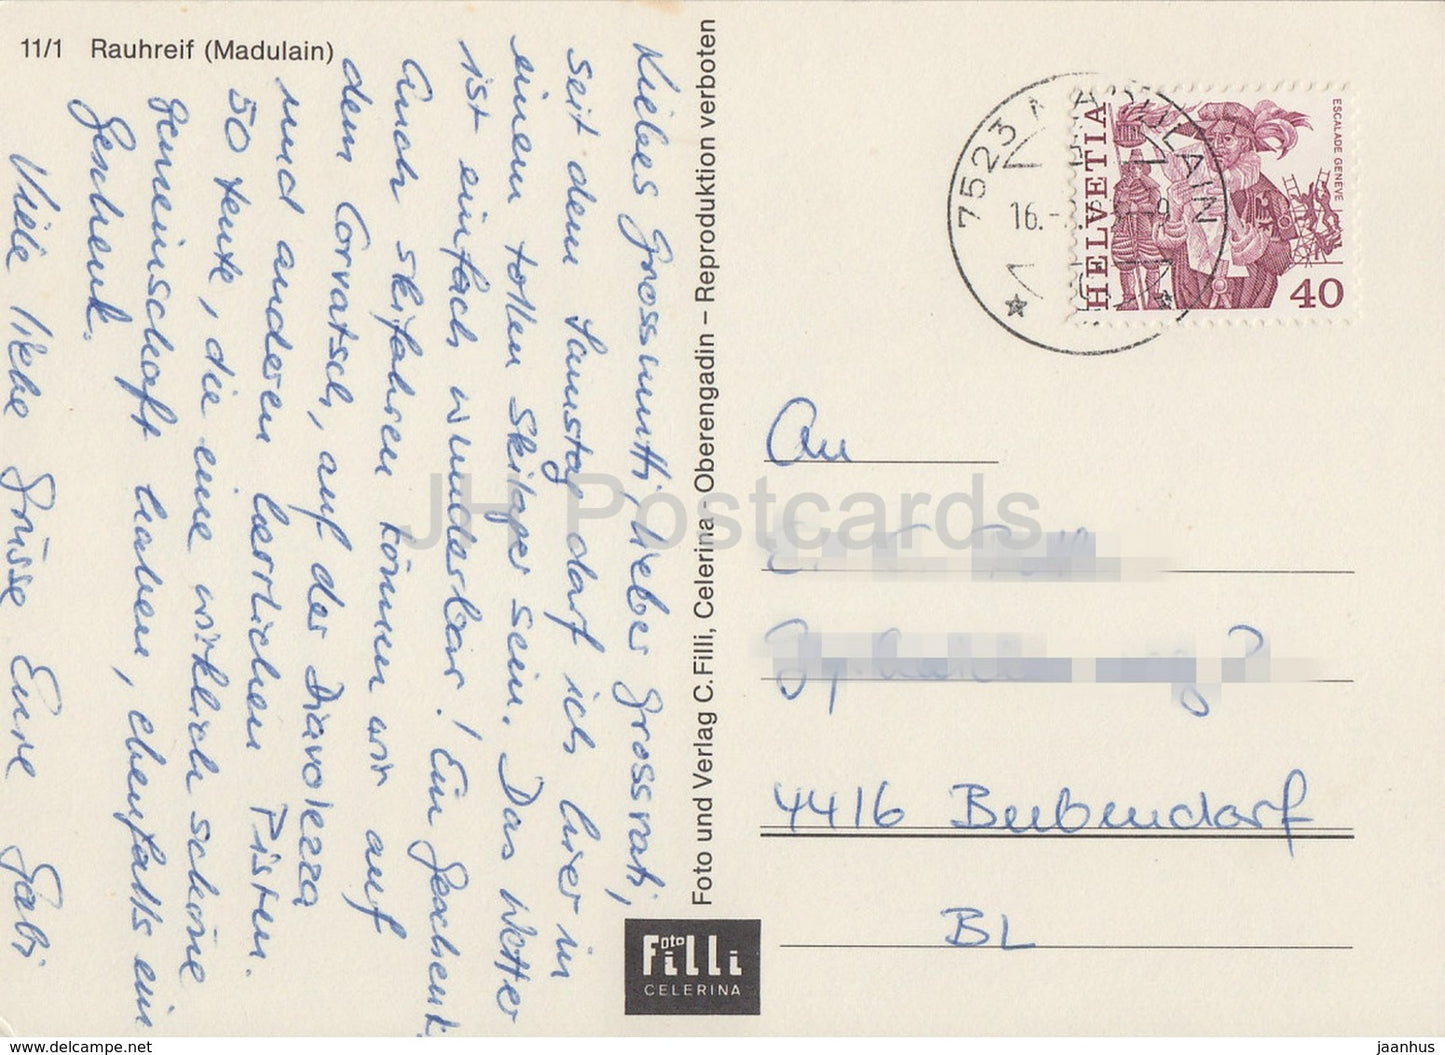 11/1 Rauhreif (Madulain)
Liebes Grossmutti, lieber Grossvati,
seit dem Samstag darf ich hier in
einem tollen Skilager sein. Das Wetter
ist einfach wunderbar! Ein Geschenk.
Auch skifahren können wir auf
dem Corvatsch, auf der Diavolezza
und anderen herrlichen Pisten.
50 Leute, die eine wirklich schöne
Gemeinschaft haben, ebenfalls ein
Geschenk.
Viele liebe Grüsse Eure Gabi
Foto und Verlag C. Filli, Celerina - Oberengadin – Reproduktion verboten
Foto
Filli
CELERINA
7523 MADULAIN
16.
9
HELVETIA
ESCALADE GENÈVE
40
An
4416 Bubendorf
BL
JH Postcards
www.delcampe.net
jaanhus